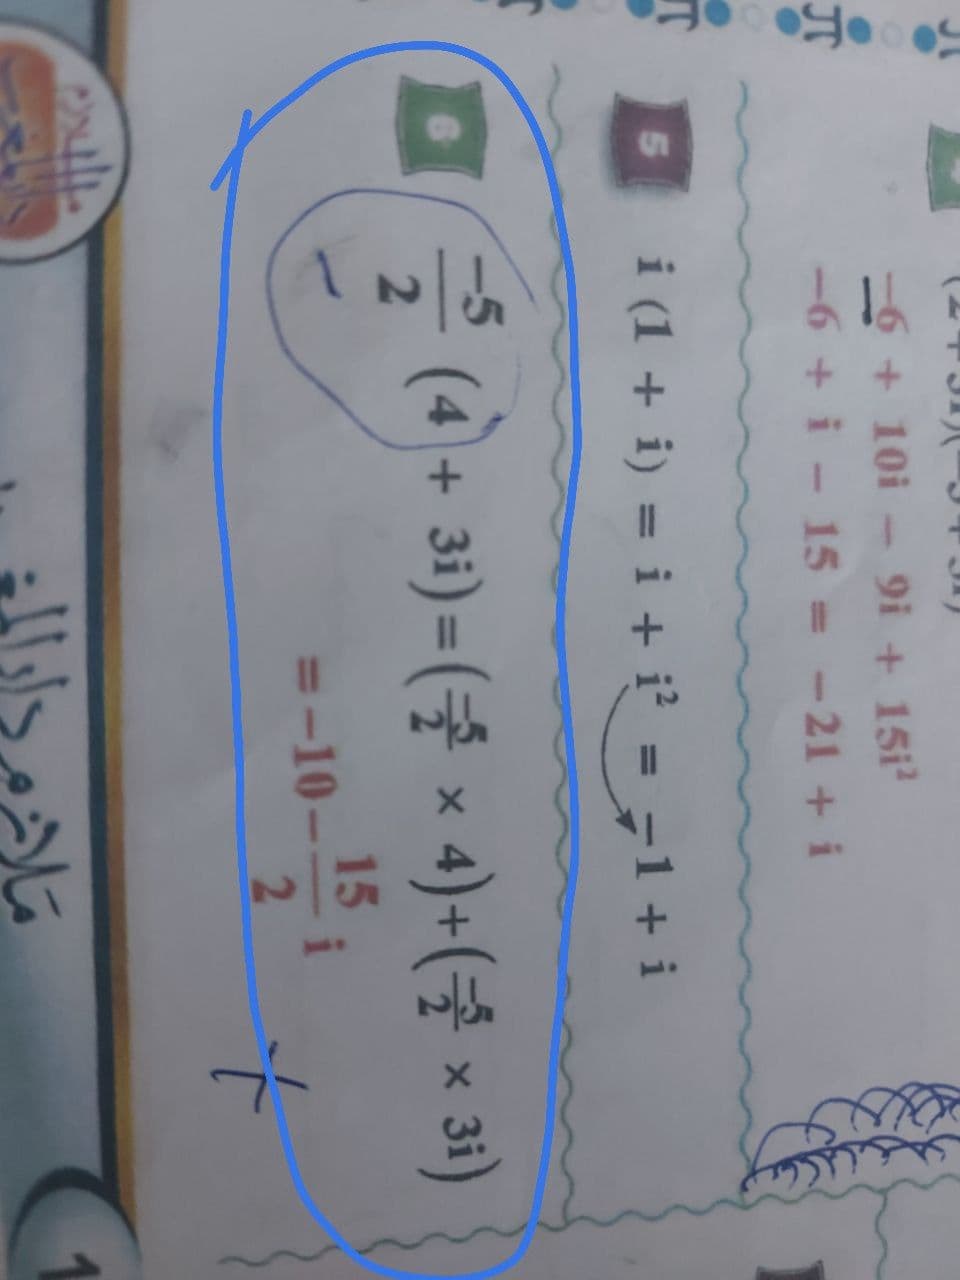 -6 + 10i - 9i + 15i²
-6 + i - 15 = -21 + i
5 i (1 + i) = i + i² = -1 + i
6 -5/2 (4 + 3i) = (-5/2 × 4) + (-5/2 × 3i)
= -10 - 15/2 i